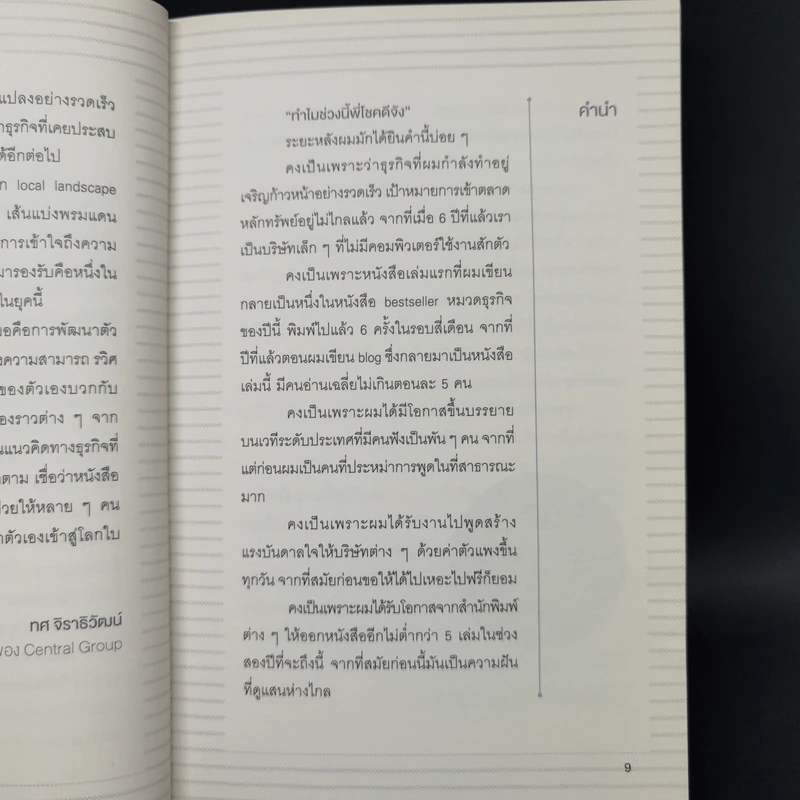 แปลงอย่างรวดเร็ว
ธุรกิจที่เคยประสบ
ด้อีกต่อไป
ก local landscape
เส้นแบ่งพรมแดน
การเข้าใจถึงความ
มารองรับคือหนึ่งใน
ในยุคนี้
อคือการพัฒนาตัว
งความสามารถ รวิศ
ของตัวเองบวกกับ
องราวต่าง ๆ จาก
นแนวคิดทางธุรกิจที่
ตาม เชื่อว่าหนังสือ
วยให้หลาย ๆ คน
าตัวเองเข้าสู่โลกใบ
ทศ จิราธิวัฒน์
ของ Central Group
คำนำ
"ทำไมช่วงนี้พี่โชคดีจัง"
ระยะหลังผมมักได้ยินคำนี้บ่อย ๆ
คงเป็นเพราะว่าธุรกิจที่ผมกำลังทำอยู่
เจริญก้าวหน้าอย่างรวดเร็ว เป้าหมายการเข้าตลาด
หลักทรัพย์อยู่ไม่ไกลแล้ว จากที่เมื่อ 6 ปีที่แล้วเรา
เป็นบริษัทเล็ก ๆ ที่ไม่มีคอมพิวเตอร์ใช้งานสักตัว
คงเป็นเพราะหนังสือเล่มแรกที่ผมเขียน
กลายเป็นหนึ่งในหนังสือ bestseller หมวดธุรกิจ
ของปีนี้ พิมพ์ไปแล้ว 6 ครั้งในรอบสี่เดือน จากที่
ปีที่แล้วตอนผมเขียน blog ซึ่งกลายมาเป็นหนังสือ
เล่มนี้ มีคนอ่านเฉลี่ยไม่เกินตอนละ 5 คน
คงเป็นเพราะผมได้มีโอกาสขึ้นบรรยาย
บนเวทีระดับประเทศที่มีคนฟังเป็นพัน ๆ คน จากที่
แต่ก่อนผมเป็นคนที่ประหม่าการพูดในที่สาธารณะ
มาก
คงเป็นเพราะผมได้รับงานไปพูดสร้าง
แรงบันดาลใจให้บริษัทต่าง ๆ ด้วยค่าตัวแพงขึ้น
ทุกวัน จากที่สมัยก่อนขอให้ได้ไปเหอะไปฟรีก็ยอม
คงเป็นเพราะผมได้รับโอกาสจากสำนักพิมพ์
ต่าง ๆ ให้ออกหนังสืออีกไม่ต่ำกว่า 5 เล่มในช่วง
สองปีที่จะถึงนี้ จากที่สมัยก่อนนี้มันเป็นความฝัน
ที่ดูแสนห่างไกล
9